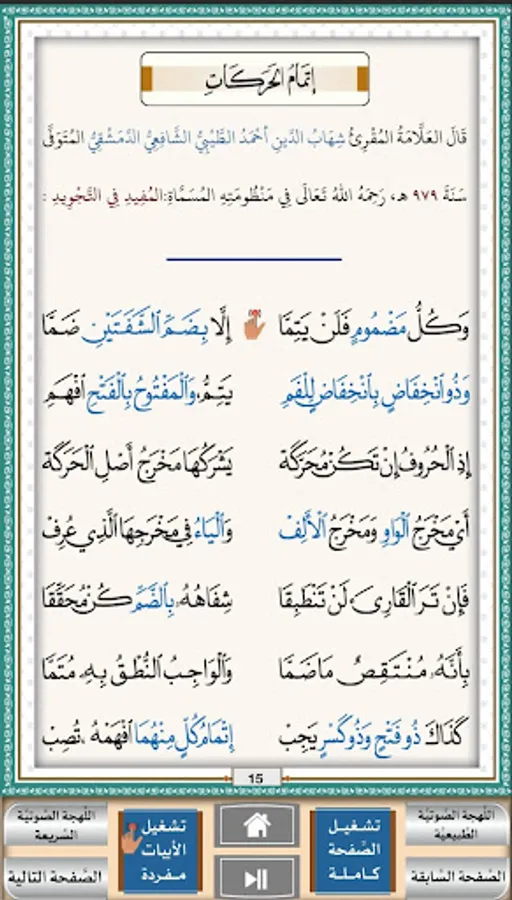 إِتْمَامُ الحَرَكَاتِ
قَالَ العَلَّامَةُ المُقْرِئُ شِهَابُ الدِّينِ أَحْمَدُ الطَّيِّبِيُّ الشَّافِعِيُّ الدِّمَشْقِيُّ المُتَوَفَّى
سَنَةَ ٩٧٩ هـ، رَحِمَهُ اللهُ تَعَالَى فِي مَنْظُومَتِهِ المُسَمَّاةِ:المُفِيدِ فِي التَّجْوِيدِ :
وَكُلُّ مَضْمُومٍ فَلَنْ يَتِمَّا إِلَّا بِضَمِّ الشَّفَتَيْنِ ضَمَّا
وَذُو انْخِفَاضٍ بِانْخِفَاضٍ لِلْفَمِ يَتِمُّ، وَالْمَفْتُوحُ بِالْفَتْحِ افْهَمِ
إِذِ الْحُرُوفُ إِنْ تَكُنْ مُحَرَّكَةْ يَشْرَكُهَا مَخْرَجُ أَصْلِ الْحَرَكَةْ
أَيْ مَخْرَجُ الْوَاوِ وَمَخْرَجُ الْأَلِفْ وَالْيَاءُ فِي مَخْرَجِهَا الَّذِي عُرِفْ
فَإِنْ تَرَ الْقَارِئَ لَنْ تَنْطَبِقَا شِفَاهُهُ بِالضَّمِّ كُنْ مُحَقِّقَا
بِأَنَّهُ مُنْتَقِصٌ مَا ضَمَّا وَالْوَاجِبُ النُّطْقُ بِهِ مُتَمَّا
كَذَاكَ ذُو فَتْحٍ وَذُو كَسْرٍ يَجِبْ إِتْمَامُ كُلٍّ مِنْهُمَا افْهَمْهُ تُصِبْ
15
اللهجة الصوتيَّة الطبيعيَّة
تشغيل الصَّفحة كاملة
تشغيل الأبيات مفردة
اللهجة الصوتيَّة السَّريعة
الصَّفحة السابقة
الصَّفحة التالية